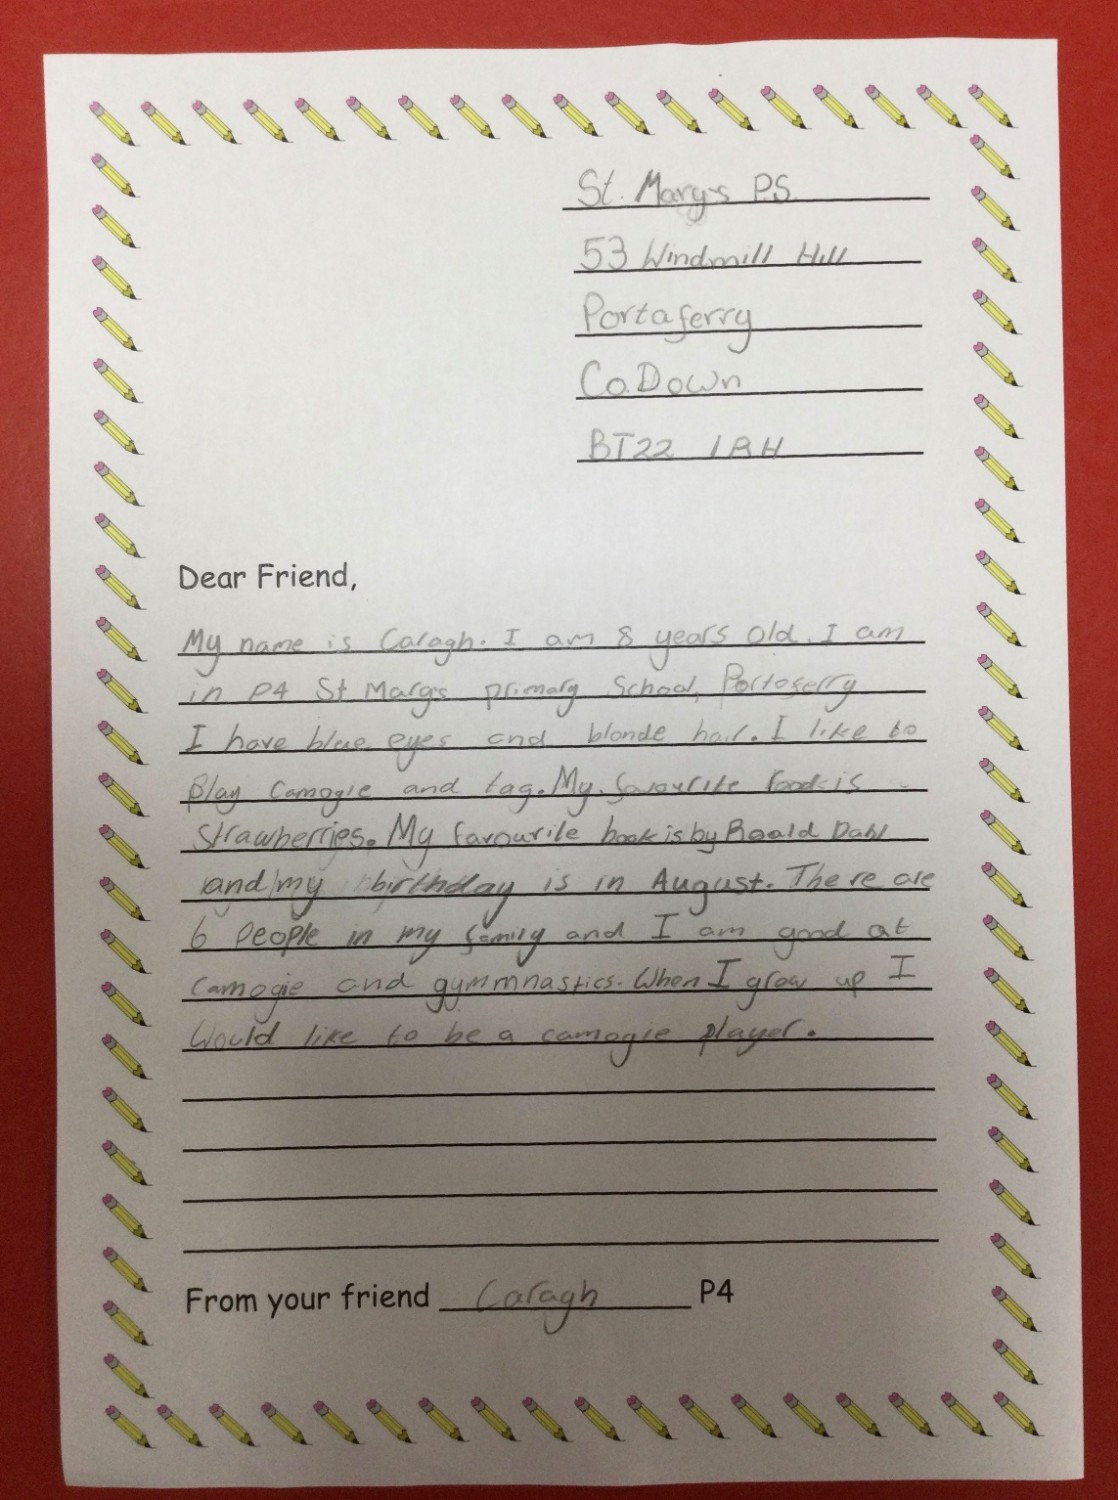 St. Mary's P.S
53 Windmill Hill
Portaferry
Co.Down
BT22 1RH
Dear Friend,
My name is Caragh. I am 8 years old. I am
in P4 St Mary's primary School, Portaferry
I have blue eyes and blonde hair. I like to
play Camogie and tag. My favourite food is
Strawberries. My favourite book is by Roald Dahl
and my birthday is in August. There are
6 People in my family and I am good at
camogie and gymmnastics. When I grow up I
Would like to be a camogie player.
From your friend Caragh P4